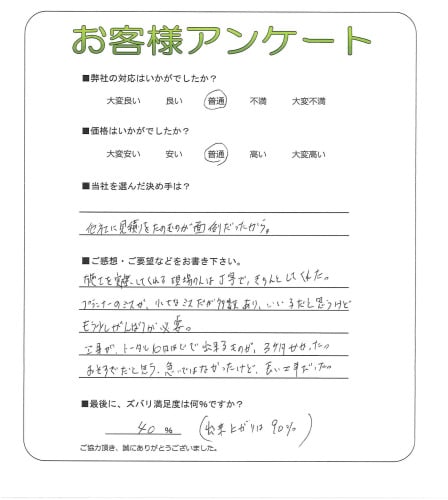 お客様アンケート
■弊社の対応はいかがでしたか?
大変良い 良い 普通 不満 大変不満
■価格はいかがでしたか?
大変安い 安い 普通 高い 大変高い
■当社を選んだ決め手は?
他社に見積りをたのむのが面倒だったから。
■ご感想・ご要望などをお書き下さい。
施工を実際してくれる現場の人は丁寧で、きちんとしてくれた。
プランナーのミスが、小さなミスだが多数あり、いい子だと思うけど
もう少しがんばりが必要。
工事が、トータル10日ほどで出来るものが、3ヶ月かかった。
おそすぎだと思う、急いではなかったけど、長い工事だった。
■最後に、ズバリ満足度は何%ですか?
40 % (出来上がりは90%)
ご協力頂き、誠にありがとうございました。